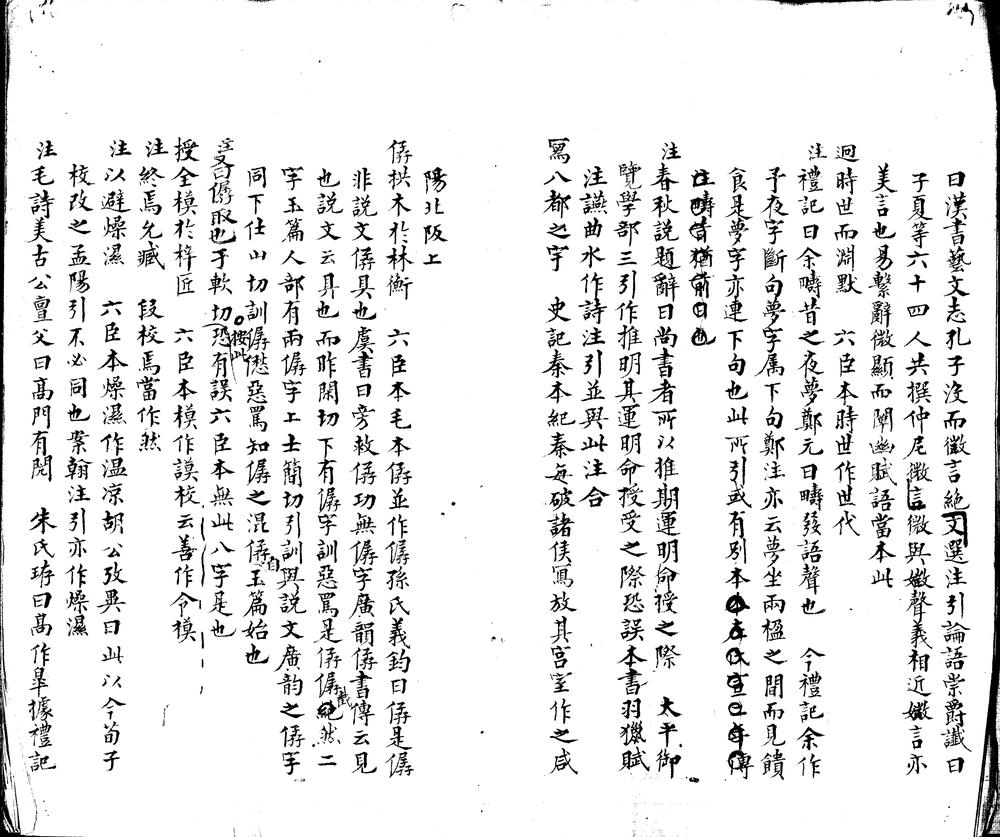 曰漢書藝文志孔子沒而微言絕文選注引論語崇爵讖曰
子夏等六十四人共撰仲尼微言微與媺聲義相近媺言亦
美言也易繫辭微顯而闡幽賦語當本此
迥時世而淵默　六臣本時世作世代
注禮記曰余疇昔之夜夢鄭元曰疇發語聲也　今禮記余作
予夜字斷句夢字属下句鄭注亦云夢坐兩楹之間而見饋
食是夢字亦連下句也此所引或有别本
注疇昔猶前日也
注春秋説題辭曰尚書者所以推期運明命授之際　太平御
覽學部三引作推明其運明命授受之際恐誤本書羽獵賦
注讌曲水作詩注引並與此注合
寫八都之宇　史記秦本紀秦每破諸侯寫放其宮室作之咸
陽北阪上
僝拱木於林衡　六臣本毛本僝並作孱孫氏義鈞曰僝是孱
非説文僝具也虞書曰旁救僝功無孱字廣韻僝書傳云見
也説文云具也而昨閑切下有孱字訓惡罵是僝孱截然二
字玉篇人部有兩僝字上士簡切引訓與説文廣韵之僝字
同下仕山切訓僝僽惡罵知孱之混僝自玉篇始也
注善曰僝取也子軟切　按此恐有誤六臣本無此八字是也
授全模於梓匠　六臣本模作謨校云善作令模
注終焉允臧　段校焉當作然
注以避燥濕　六臣本燥濕作温凉胡公攷異曰此以今荀子
校改之孟陽引不必同也案翰注引亦作燥濕
注毛詩美古公亶父曰高門有閌　朱氏珔曰高作皋據禮記